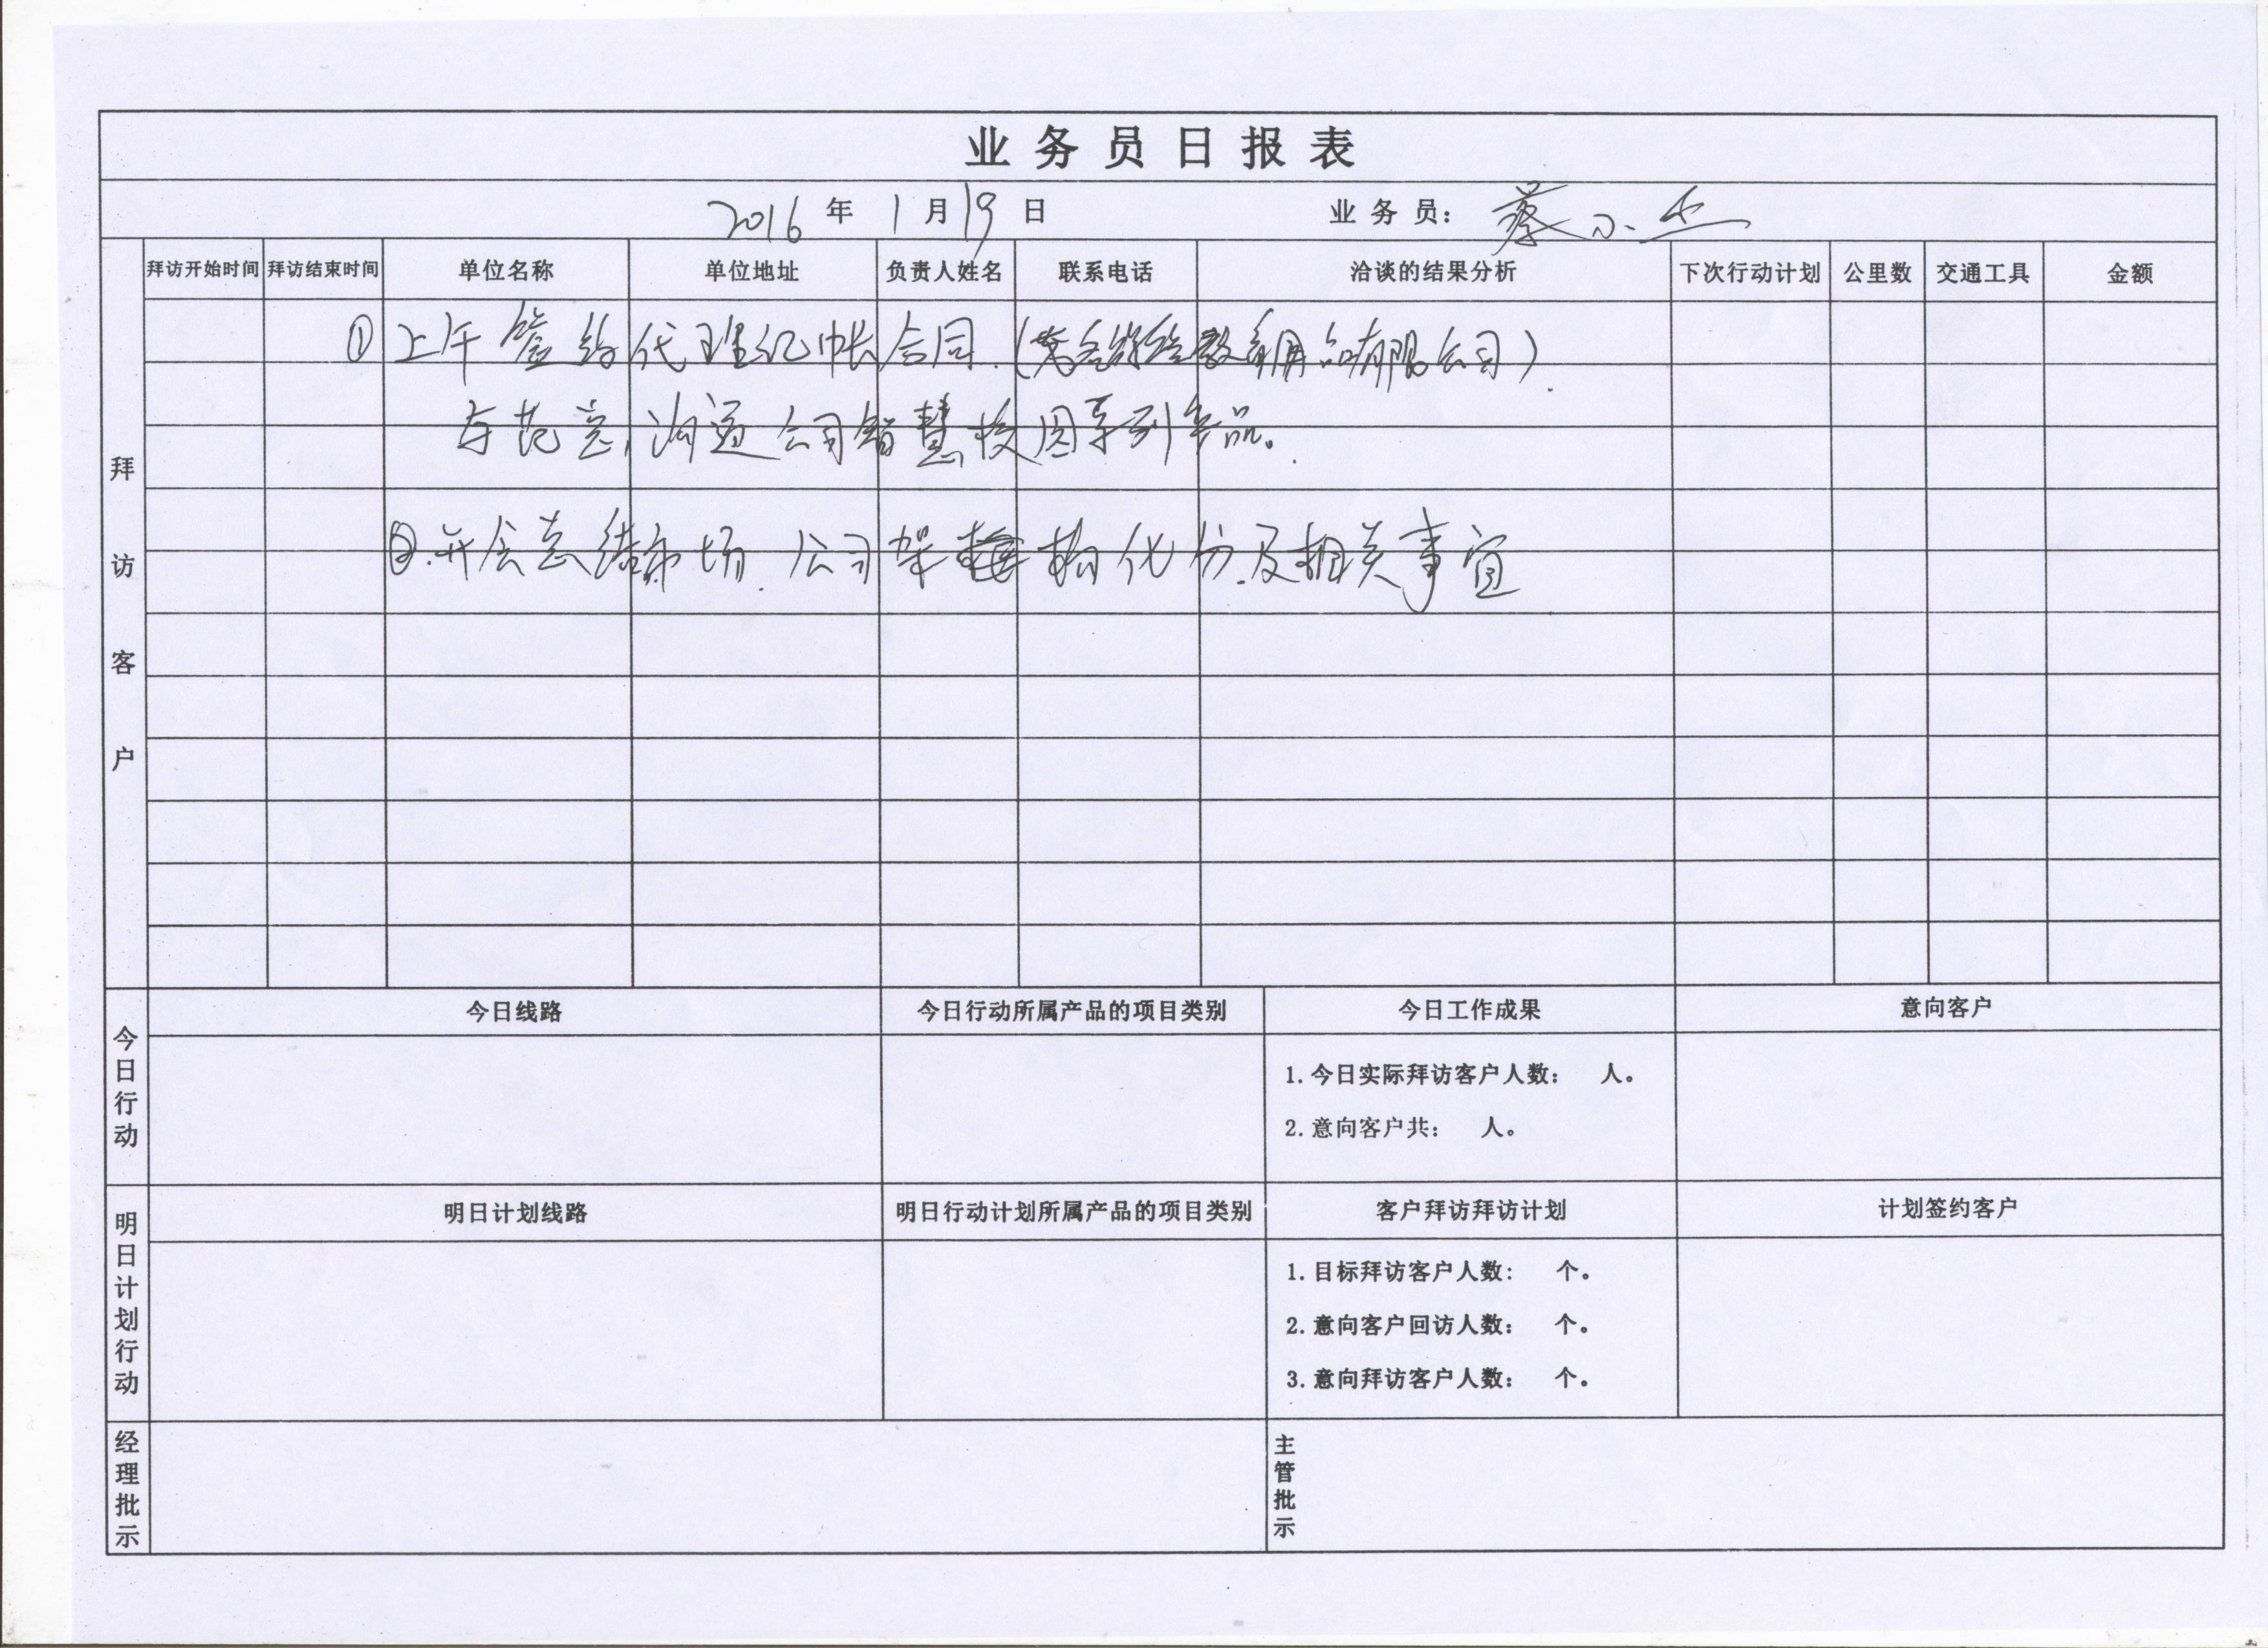 业务员日报表
2016 年 1 月 19 日 业务员： 蔡小
拜访客户
拜访开始时间 拜访结束时间 单位名称 单位地址 负责人姓名 联系电话 洽谈的结果分析 下次行动计划 公里数 交通工具 金额
① 上午签约代理记帐合同.( 教育用品有限公司).
与范总,沟通公司智慧校园系列产品。
②.开会总结市场.公司架 构化分.及相关事宜
今日行动
今日线路 今日行动所属产品的项目类别 今日工作成果 意向客户
1.今日实际拜访客户人数： 人。
2.意向客户共： 人。
明日计划行动
明日计划线路 明日行动计划所属产品的项目类别 客户拜访拜访计划 计划签约客户
1.目标拜访客户人数： 个。
2.意向客户回访人数： 个。
3.意向拜访客户人数： 个。
经理批示
主管批示